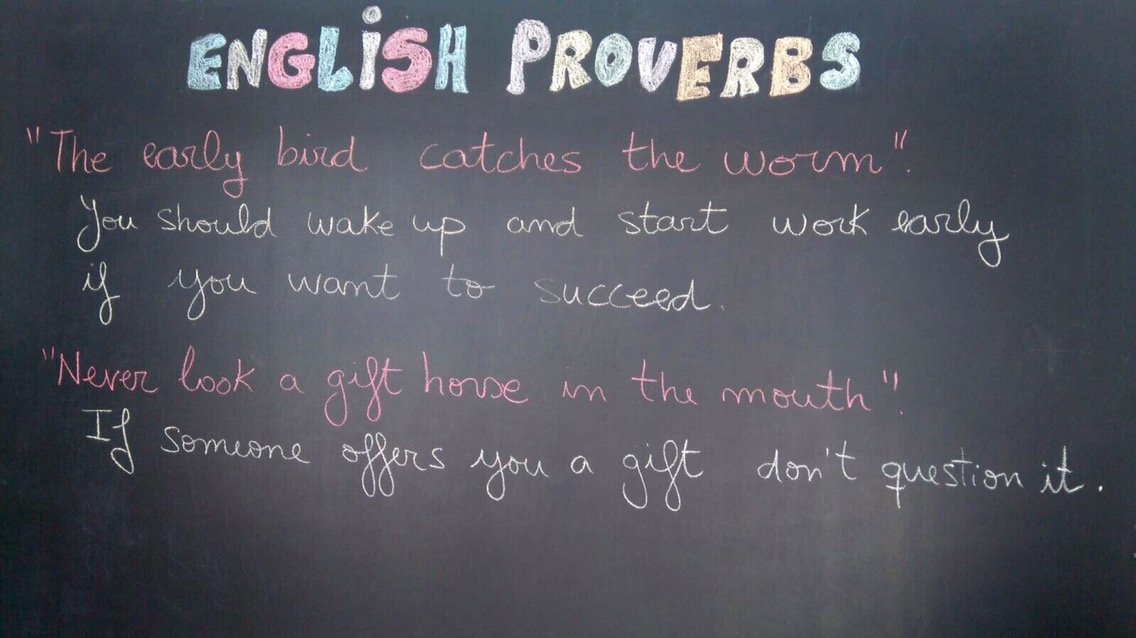 ENGLiSH PROVERBS
"The early bird catches the worm".
You should wake up and start work early
if you want to succeed.
"Never look a gift horse in the mouth".
If someone offers you a gift don't question it.